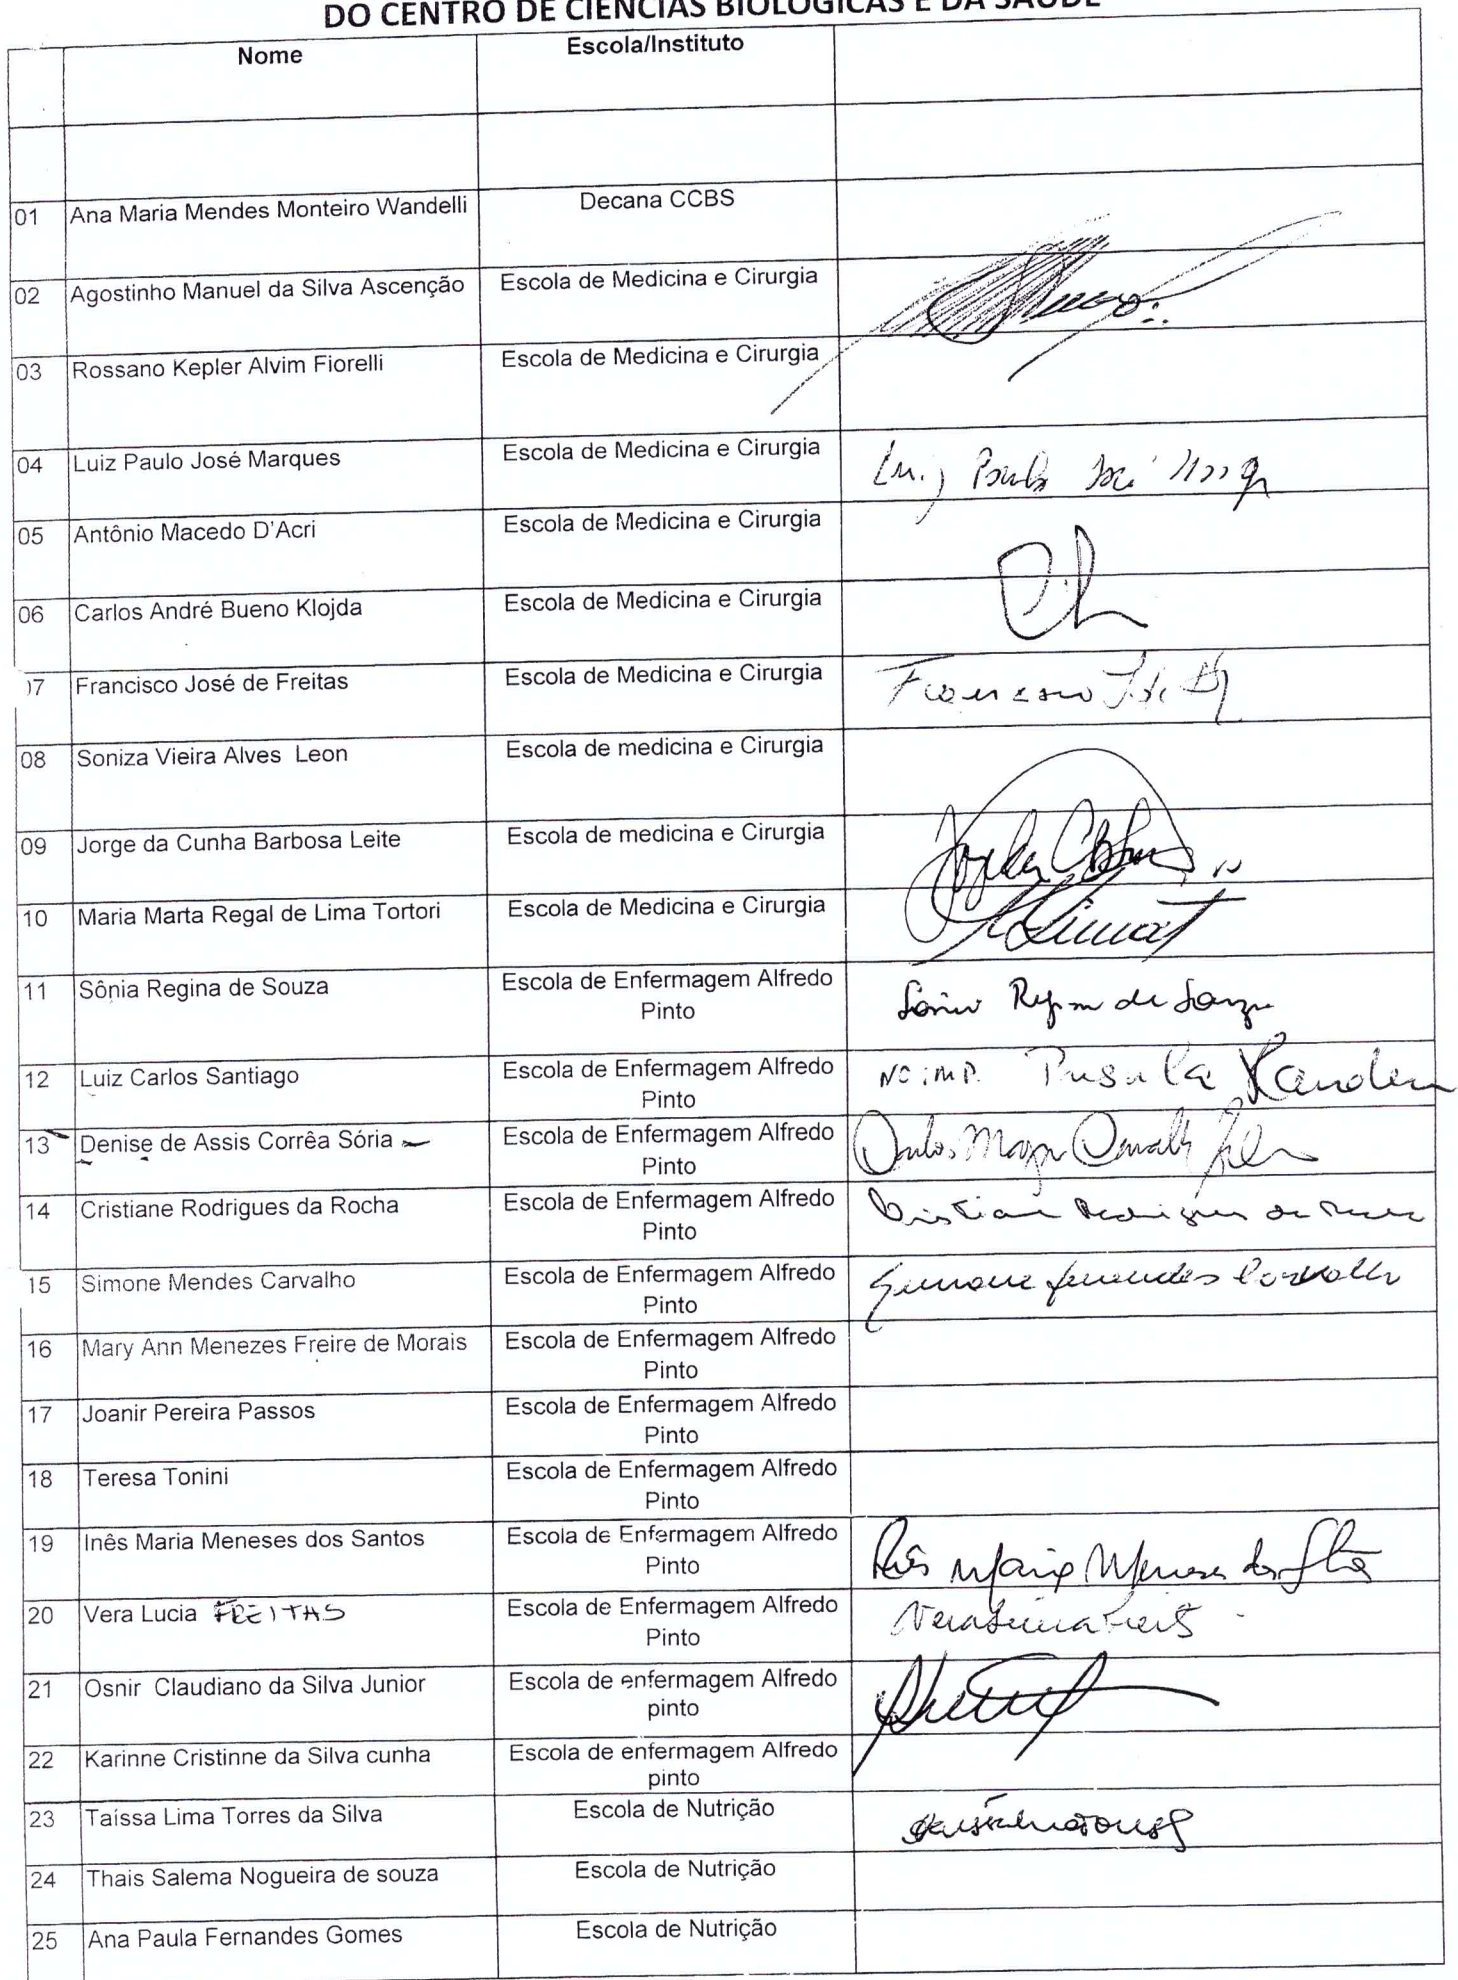 DO CENTRO DE CIÊNCIAS BIOLÓGICAS E DA SAÚDE
Nome Escola/Instituto
01 Ana Maria Mendes Monteiro Wandelli Decana CCBS
02 Agostinho Manuel da Silva Ascenção Escola de Medicina e Cirurgia
03 Rossano Kepler Alvim Fiorelli Escola de Medicina e Cirurgia
04 Luiz Paulo José Marques Escola de Medicina e Cirurgia
05 Antônio Macedo D'Acri Escola de Medicina e Cirurgia
06 Carlos André Bueno Klojda Escola de Medicina e Cirurgia
07 Francisco José de Freitas Escola de Medicina e Cirurgia
08 Soniza Vieira Alves Leon Escola de medicina e Cirurgia
09 Jorge da Cunha Barbosa Leite Escola de medicina e Cirurgia
10 Maria Marta Regal de Lima Tortori Escola de Medicina e Cirurgia
11 Sônia Regina de Souza Escola de Enfermagem Alfredo
Pinto Sônia Regina de Souza
12 Luiz Carlos Santiago Escola de Enfermagem Alfredo
Pinto
13 Denise de Assis Corrêa Sória Escola de Enfermagem Alfredo
Pinto
14 Cristiane Rodrigues da Rocha Escola de Enfermagem Alfredo
Pinto Cristiane Rodrigues da Rocha
15 Simone Mendes Carvalho Escola de Enfermagem Alfredo
Pinto Simone Mendes Carvalho
16 Mary Ann Menezes Freire de Morais Escola de Enfermagem Alfredo
Pinto
17 Joanir Pereira Passos Escola de Enfermagem Alfredo
Pinto
18 Teresa Tonini Escola de Enfermagem Alfredo
Pinto
19 Inês Maria Meneses dos Santos Escola de Enfermagem Alfredo
Pinto Inês Maria Meneses dos Santos
20 Vera Lucia FREITAS Escola de Enfermagem Alfredo
Pinto
21 Osnir Claudiano da Silva Junior Escola de enfermagem Alfredo
pinto
22 Karinne Cristinne da Silva cunha Escola de enfermagem Alfredo
pinto
23 Taíssa Lima Torres da Silva Escola de Nutrição
24 Thais Salema Nogueira de souza Escola de Nutrição
25 Ana Paula Fernandes Gomes Escola de Nutrição